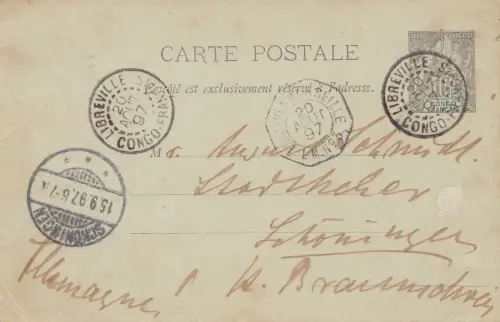 RÉPUBLIQUE FRANÇAISE
CARTE POSTALE
Ce côté est exclusivement réservé à l'adresse.
LIBREVILLE
20
AOUT
97
CONGO-FRANÇAIS
20
AOUT
97
L.M.Nº3
LIBREVILLE
20
97
CONGO-F
10
CONGO FRANÇAIS
M. August Schmidt.
Schöningen
15.9.97.6-7N.
SCHÖNINGEN
Allemagne
H. Braunschweig